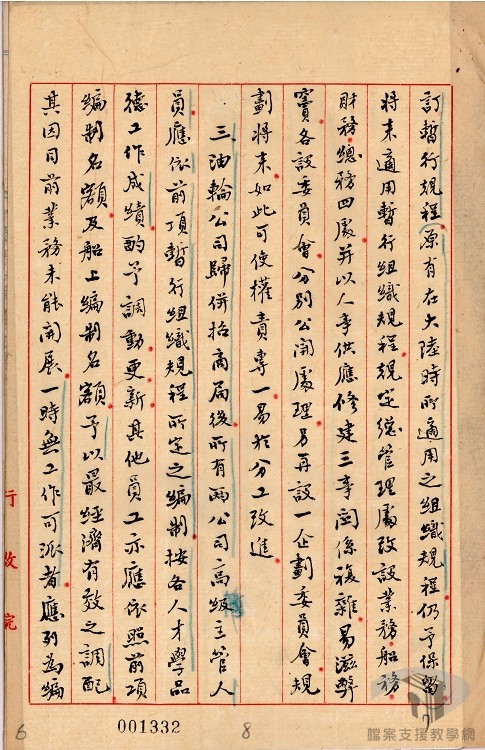 訂暫行規程原有在大陸時所適用之組織規程仍予保留
將來適用暫行組織規程規定總管理處改設業務船務
財務總務四處并以人事供應修建三事關係複雜易滋弊
竇各設委員會分別公開處理另再設一企劃委員會規
劃將來如此可使權責專一易於分工改進
三、油輪公司歸併招商局後所有兩公司高級主管人
員應依前項暫行組織規程所定之編制按各人才學品
德工作成績酌予調動更新其他員工亦應依照前項
編制名額及船上編制名額予以最經濟有效之調配
其因目前業務未能開展一時無工作可派者應列為編
行政院
6
001332
8
檔案支援教學網